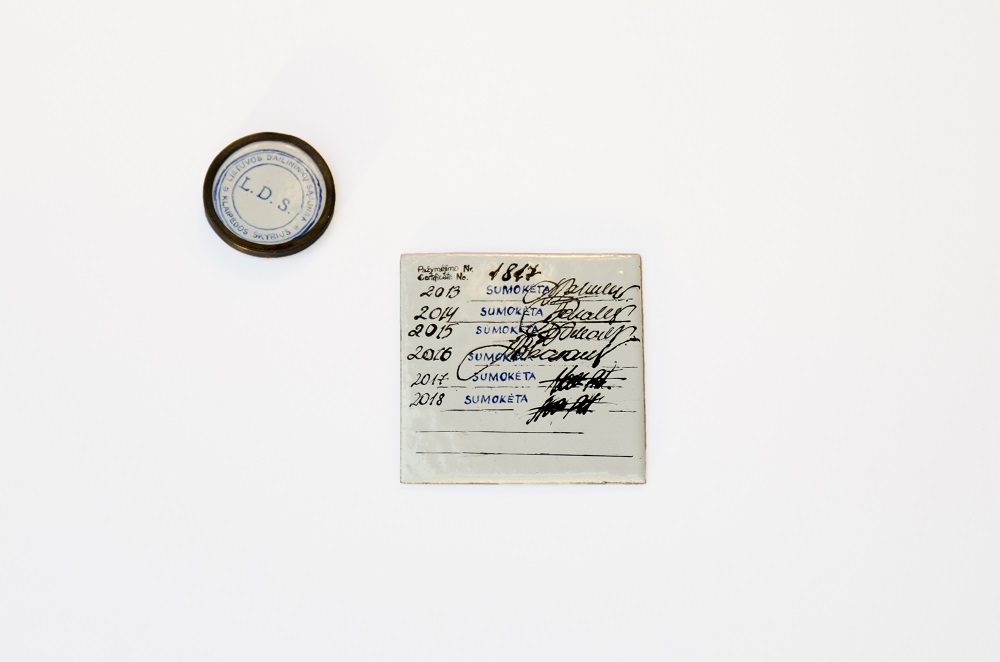 LIETUVOS DAILININKŲ SĄJUNGA
L. D. S.
KLAIPĖDOS SKYRIUS
Pažymėjimo Nr. 1817
Certificate No.
2013 SUMOKĖTA
2014 SUMOKĖTA
2015 SUMOKĖTA
2016 SUMOKĖTA
2017 SUMOKĖTA
2018 SUMOKĖTA